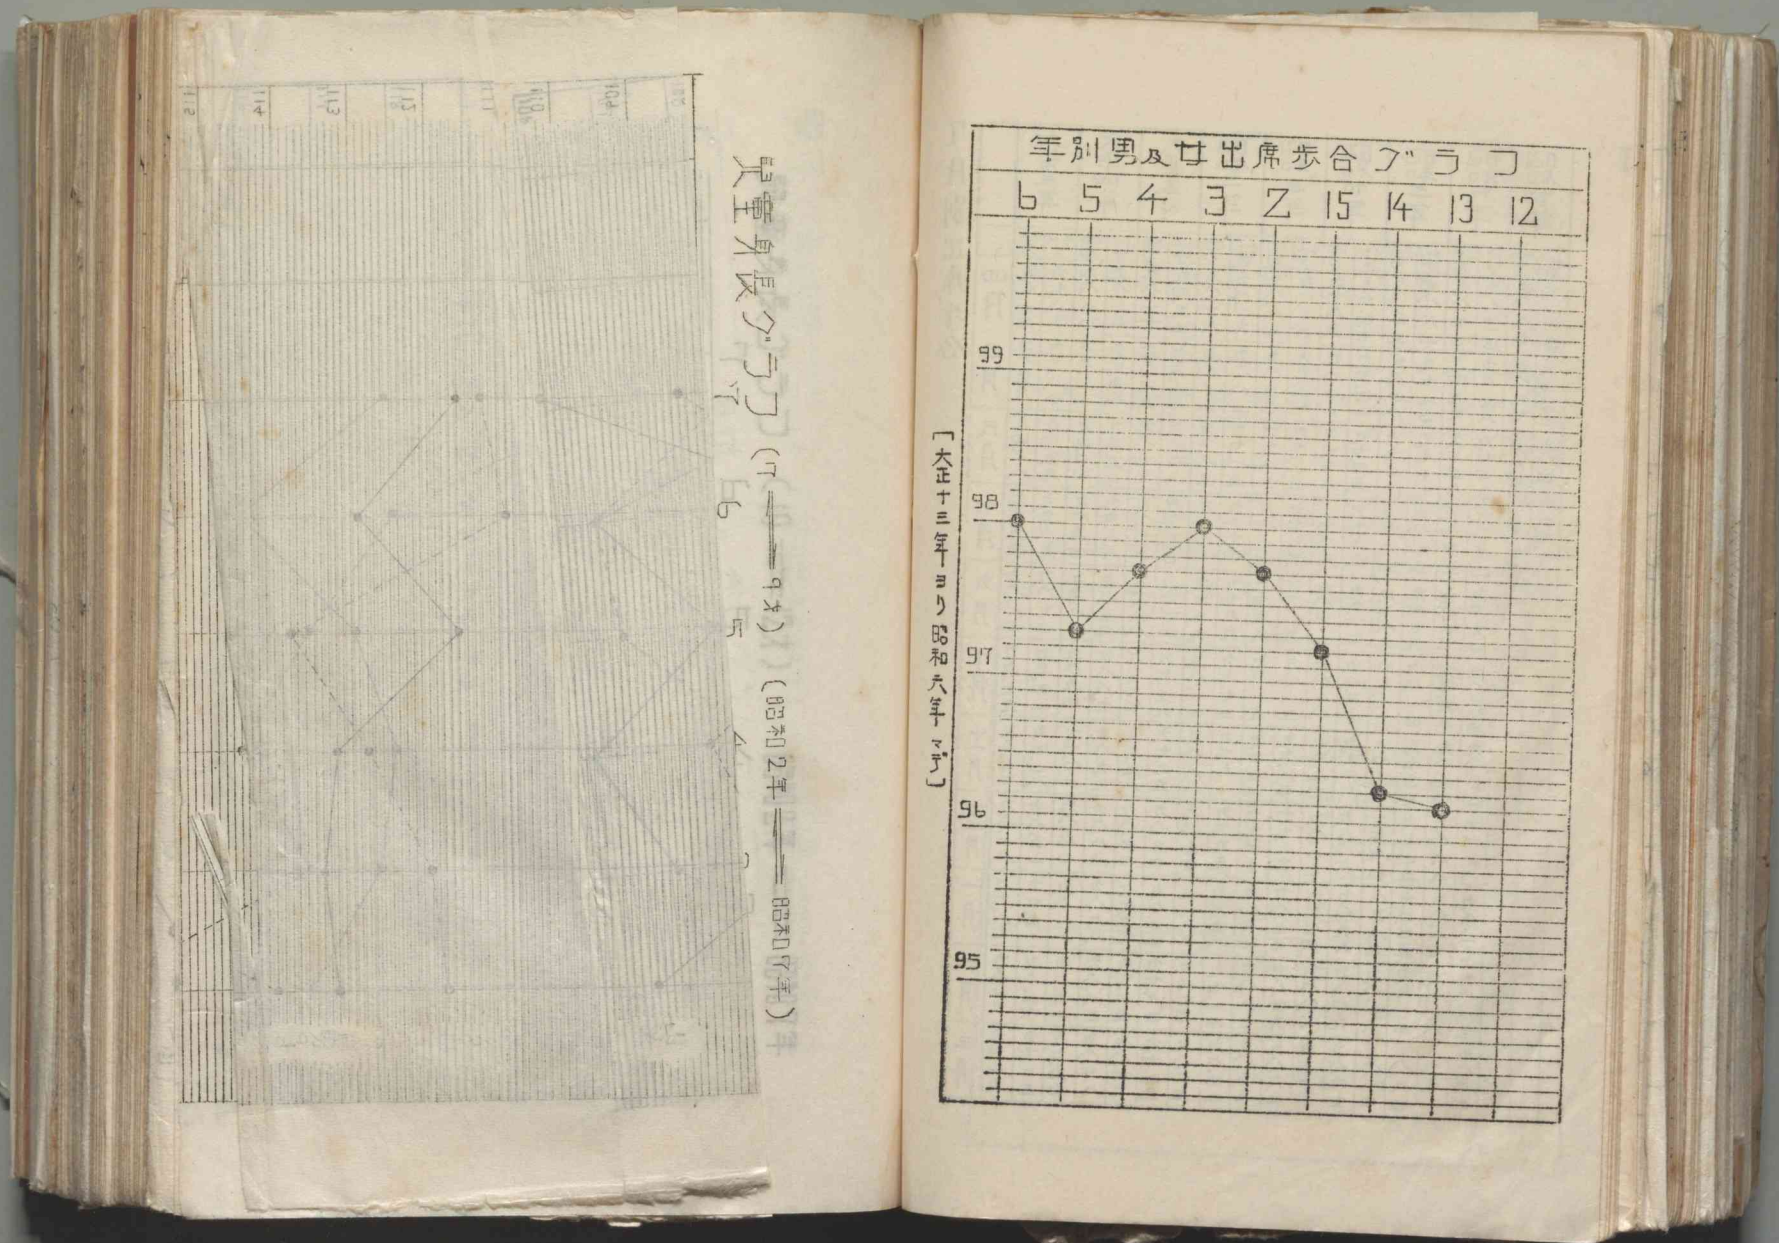 年別男及女出席歩合グラフ
6 5 4 3 2 15 14 13 12
99
98
97
96
95
[大正十三年ヨリ昭和六年マデ]
身長グラフ(7 9才)(昭和2年 昭和7年)
7
6
5
4
115 114 113 112 111 110 109